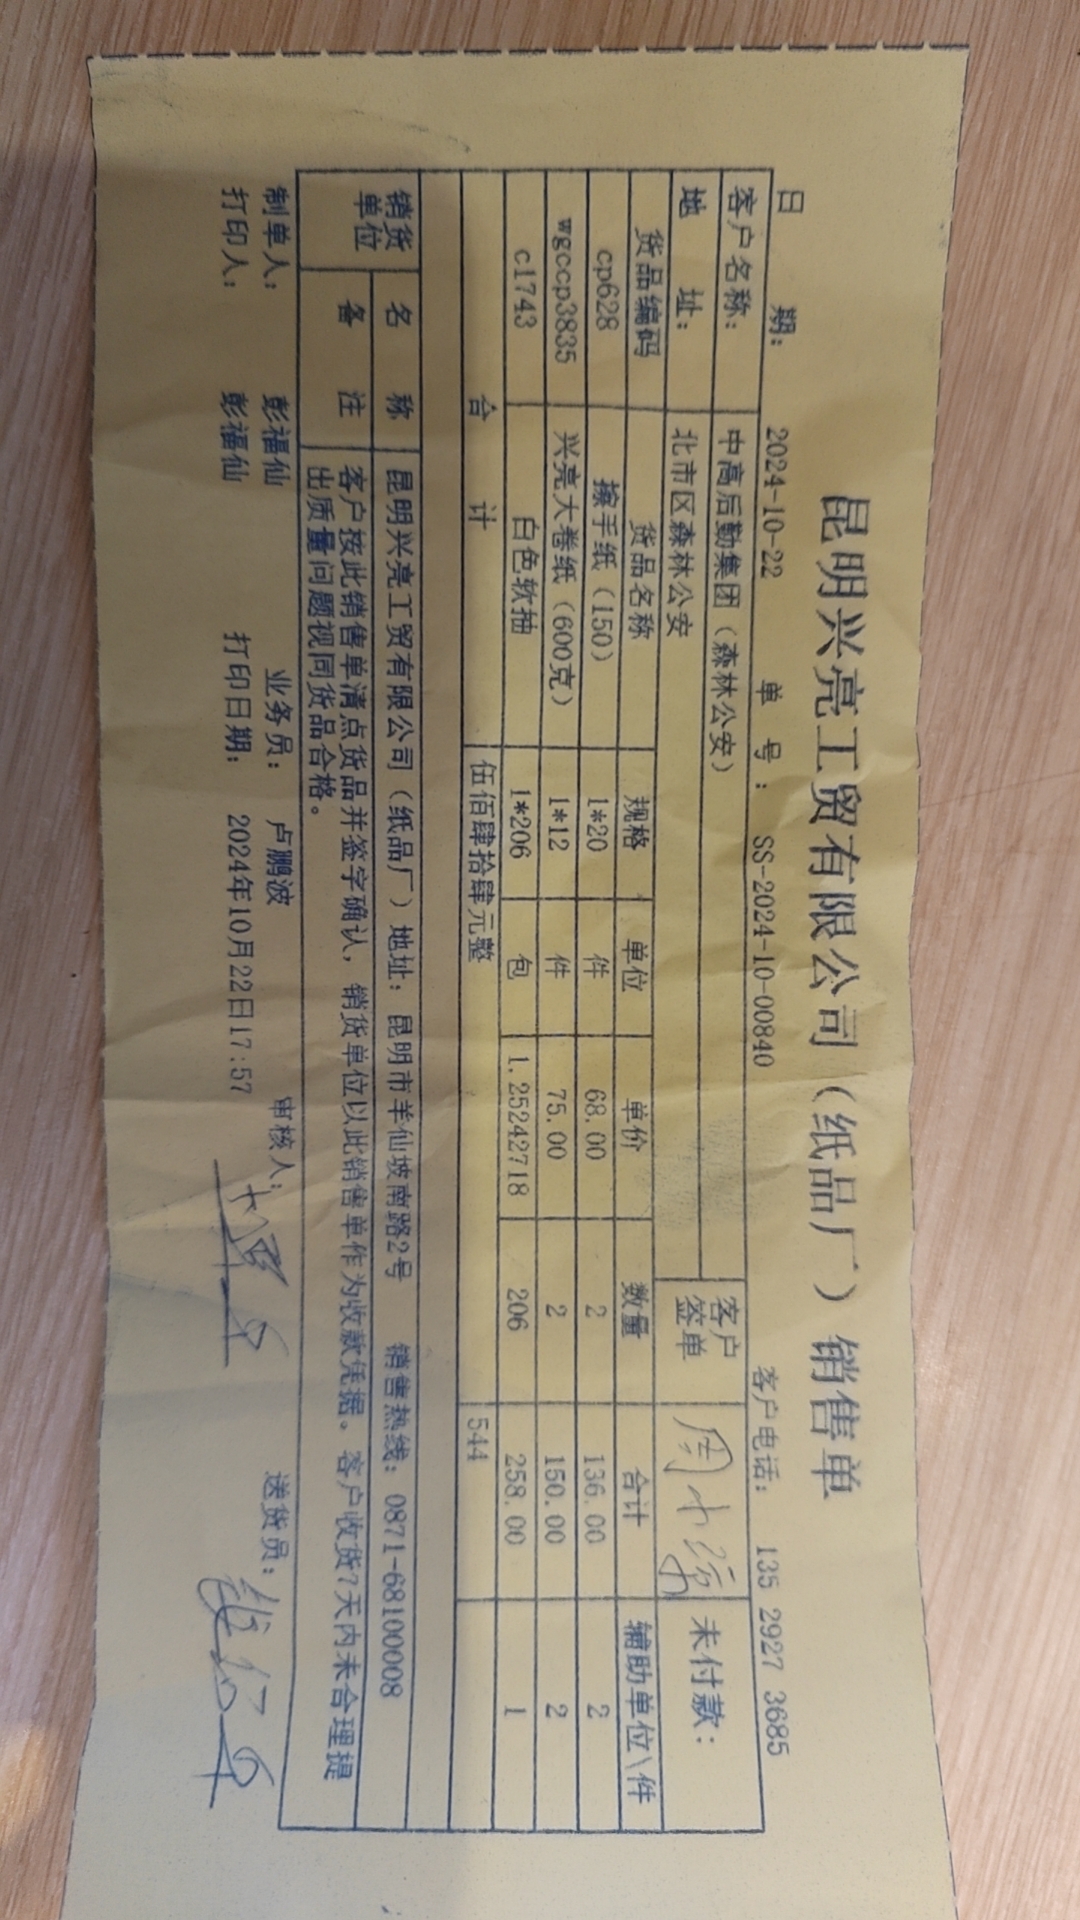 昆明兴亮工贸有限公司（纸品厂）销售单
日 期： 2024-10-22 单 号： SS-2024-10-00840 客户电话： 135 2927 3685
客户名称： 中高后勤集团（森林公安） 客户签单 未付款：
地 址： 北市区森林公安
货品编码 货品名称 规格 单位 单价 数量 合计 辅助单位\件
cp628 擦手纸（150） 1*20 件 68.00 2 136.00 2
wgccp3835 兴亮大卷纸（600克） 1*12 件 75.00 2 150.00 2
c1743 白色软抽 1*206 包 1.25242718 206 258.00 1
合 计 伍佰肆拾肆元整 544
销货单位 名 称 昆明兴亮工贸有限公司（纸品厂）地址：昆明市羊仙坡南路2号 销售热线：0871-68100008
备 注 客户按此销售单清点货品并签字确认，销货单位以此销售单作为收款凭据。客户收货7天内未合理提
出质量问题视同货品合格。
制单人： 彭福仙 业务员： 卢鹏波 审核人： 送货员：
打印人： 彭福仙 打印日期： 2024年10月22日17:57